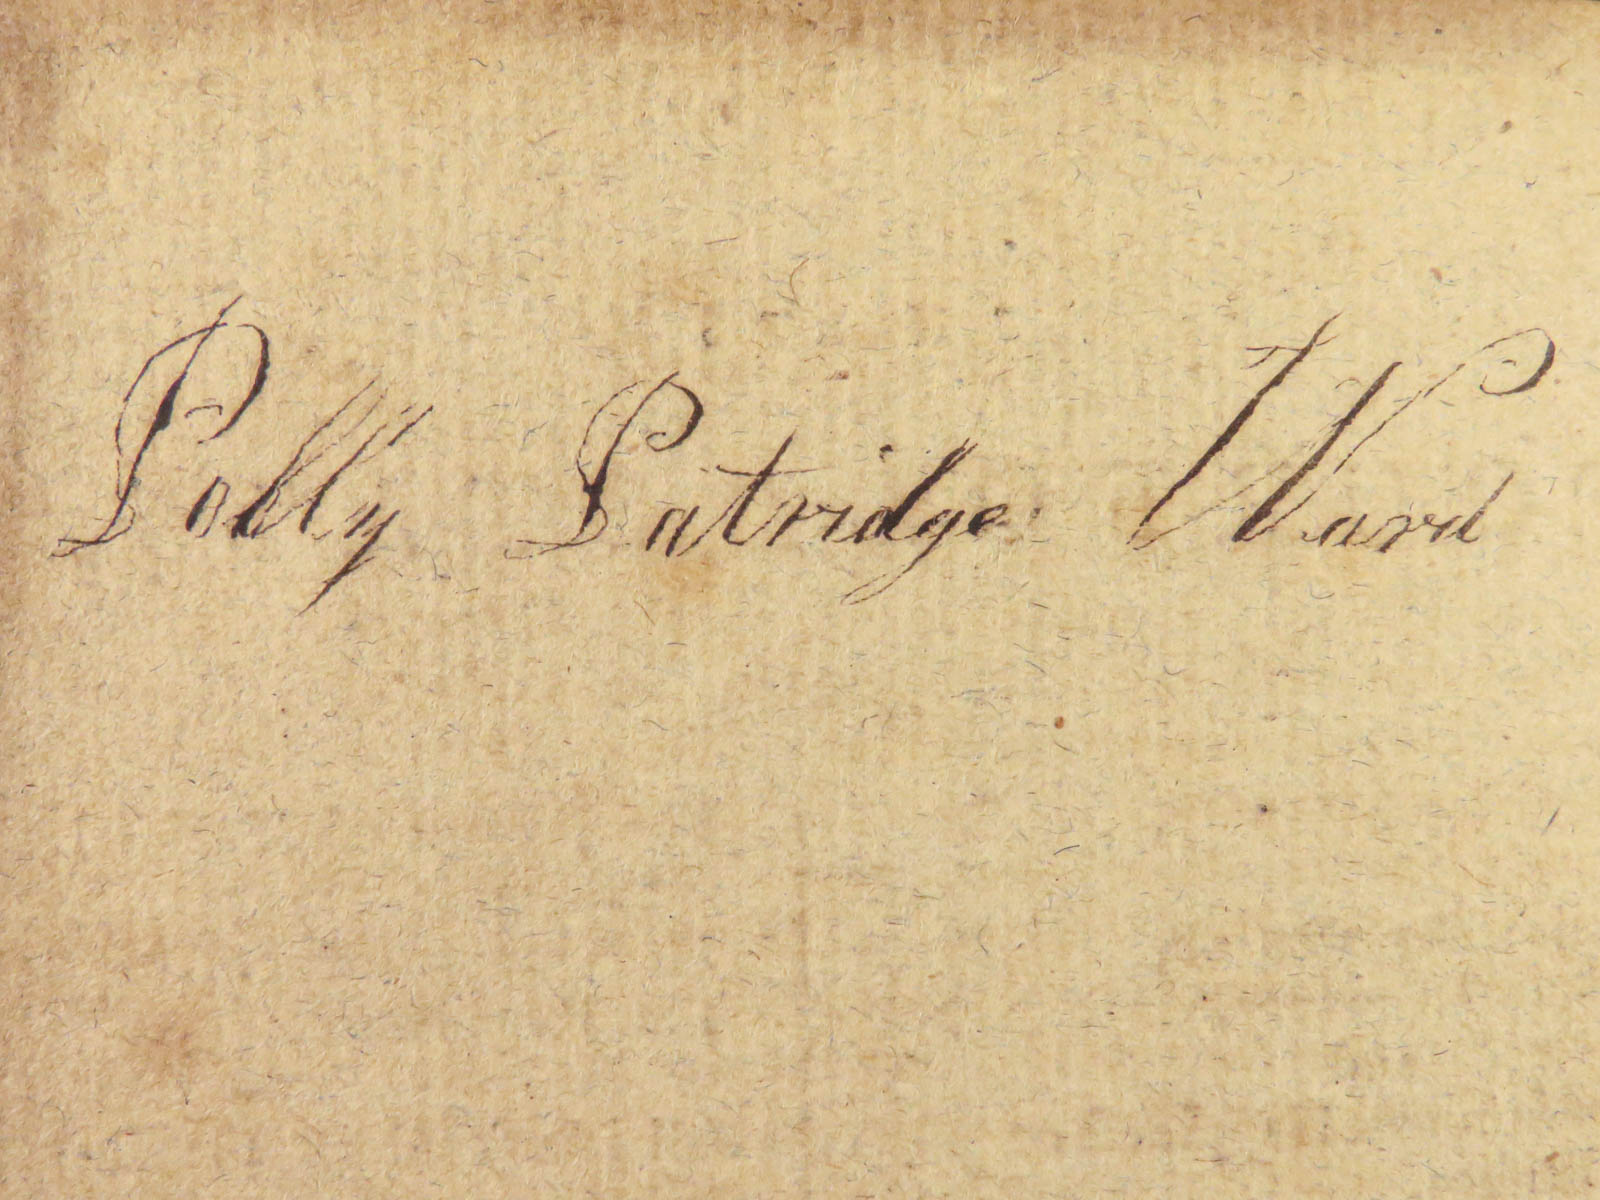 Polly Patridge Ward